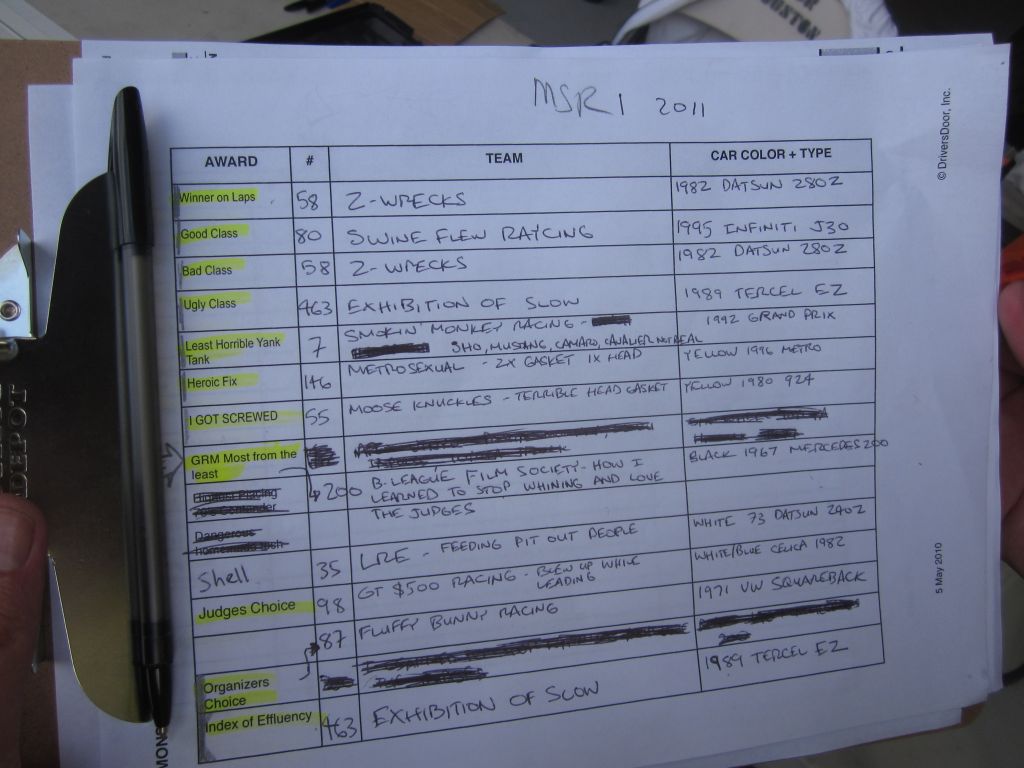 MSR 1 2011
AWARD # TEAM CAR COLOR + TYPE
Winner on Laps 58 Z-WRECKS 1982 DATSUN 280Z
Good Class 80 SWINE FLEW RAYCING 1995 INFINITI J30
Bad Class 58 Z-WRECKS 1982 DATSUN 280Z
Ugly Class 463 EXHIBITION OF SLOW 1989 TERCEL EZ
Least Horrible Yank
Tank 7 SMOKIN' MONKEY RACING - 1992 GRAND PRIX
SHO, MUSTANG, CAMARO, CAVALIER NOT REAL
Heroic Fix 146 METROSEXUAL - 2X GASKET 1X HEAD YELLOW 1996 METRO
I GOT SCREWED 55 MOOSE KNUCKLES - TERRIBLE HEAD GASKET YELLOW 1980 924
GRM Most from the
least
200 B-LEAGUE FILM SOCIETY - HOW I BLACK 1967 MERCEDES 200
LEARNED TO STOP WHINING AND LOVE
THE JUDGES
Dangerous
homemade
Shell 35 LRE - FEEDING PIT OUT PEOPLE WHITE 73 DATSUN 240Z
Judges Choice 98 GT $500 RACING - BLEW UP WHILE WHITE/BLUE CELICA 1982
LEADING
87 FLUFFY BUNNY RACING 1971 VW SQUAREBACK
Organizers
Choice
Index of Effluency 463 EXHIBITION OF SLOW 1989 TERCEL EZ
© DriversDoor, Inc.
5 May 2010
DEPOT
MONS